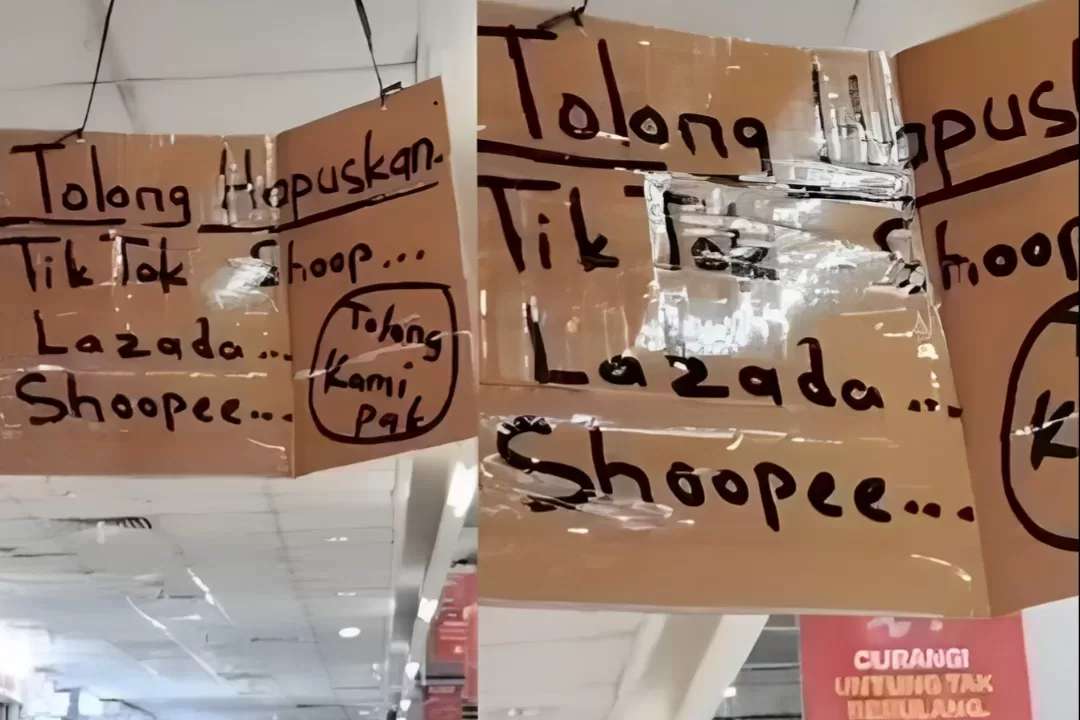 Tolong Hapuskan.
Tik Tok Shoop...
Lazada...
Shoopee...
Tolong
Kami
Pak
Tolong Hapus
Tik Tok Shoop
Lazada...
Shoopee...
K
CURANGI
UNTUNG TAK
BERULANG.